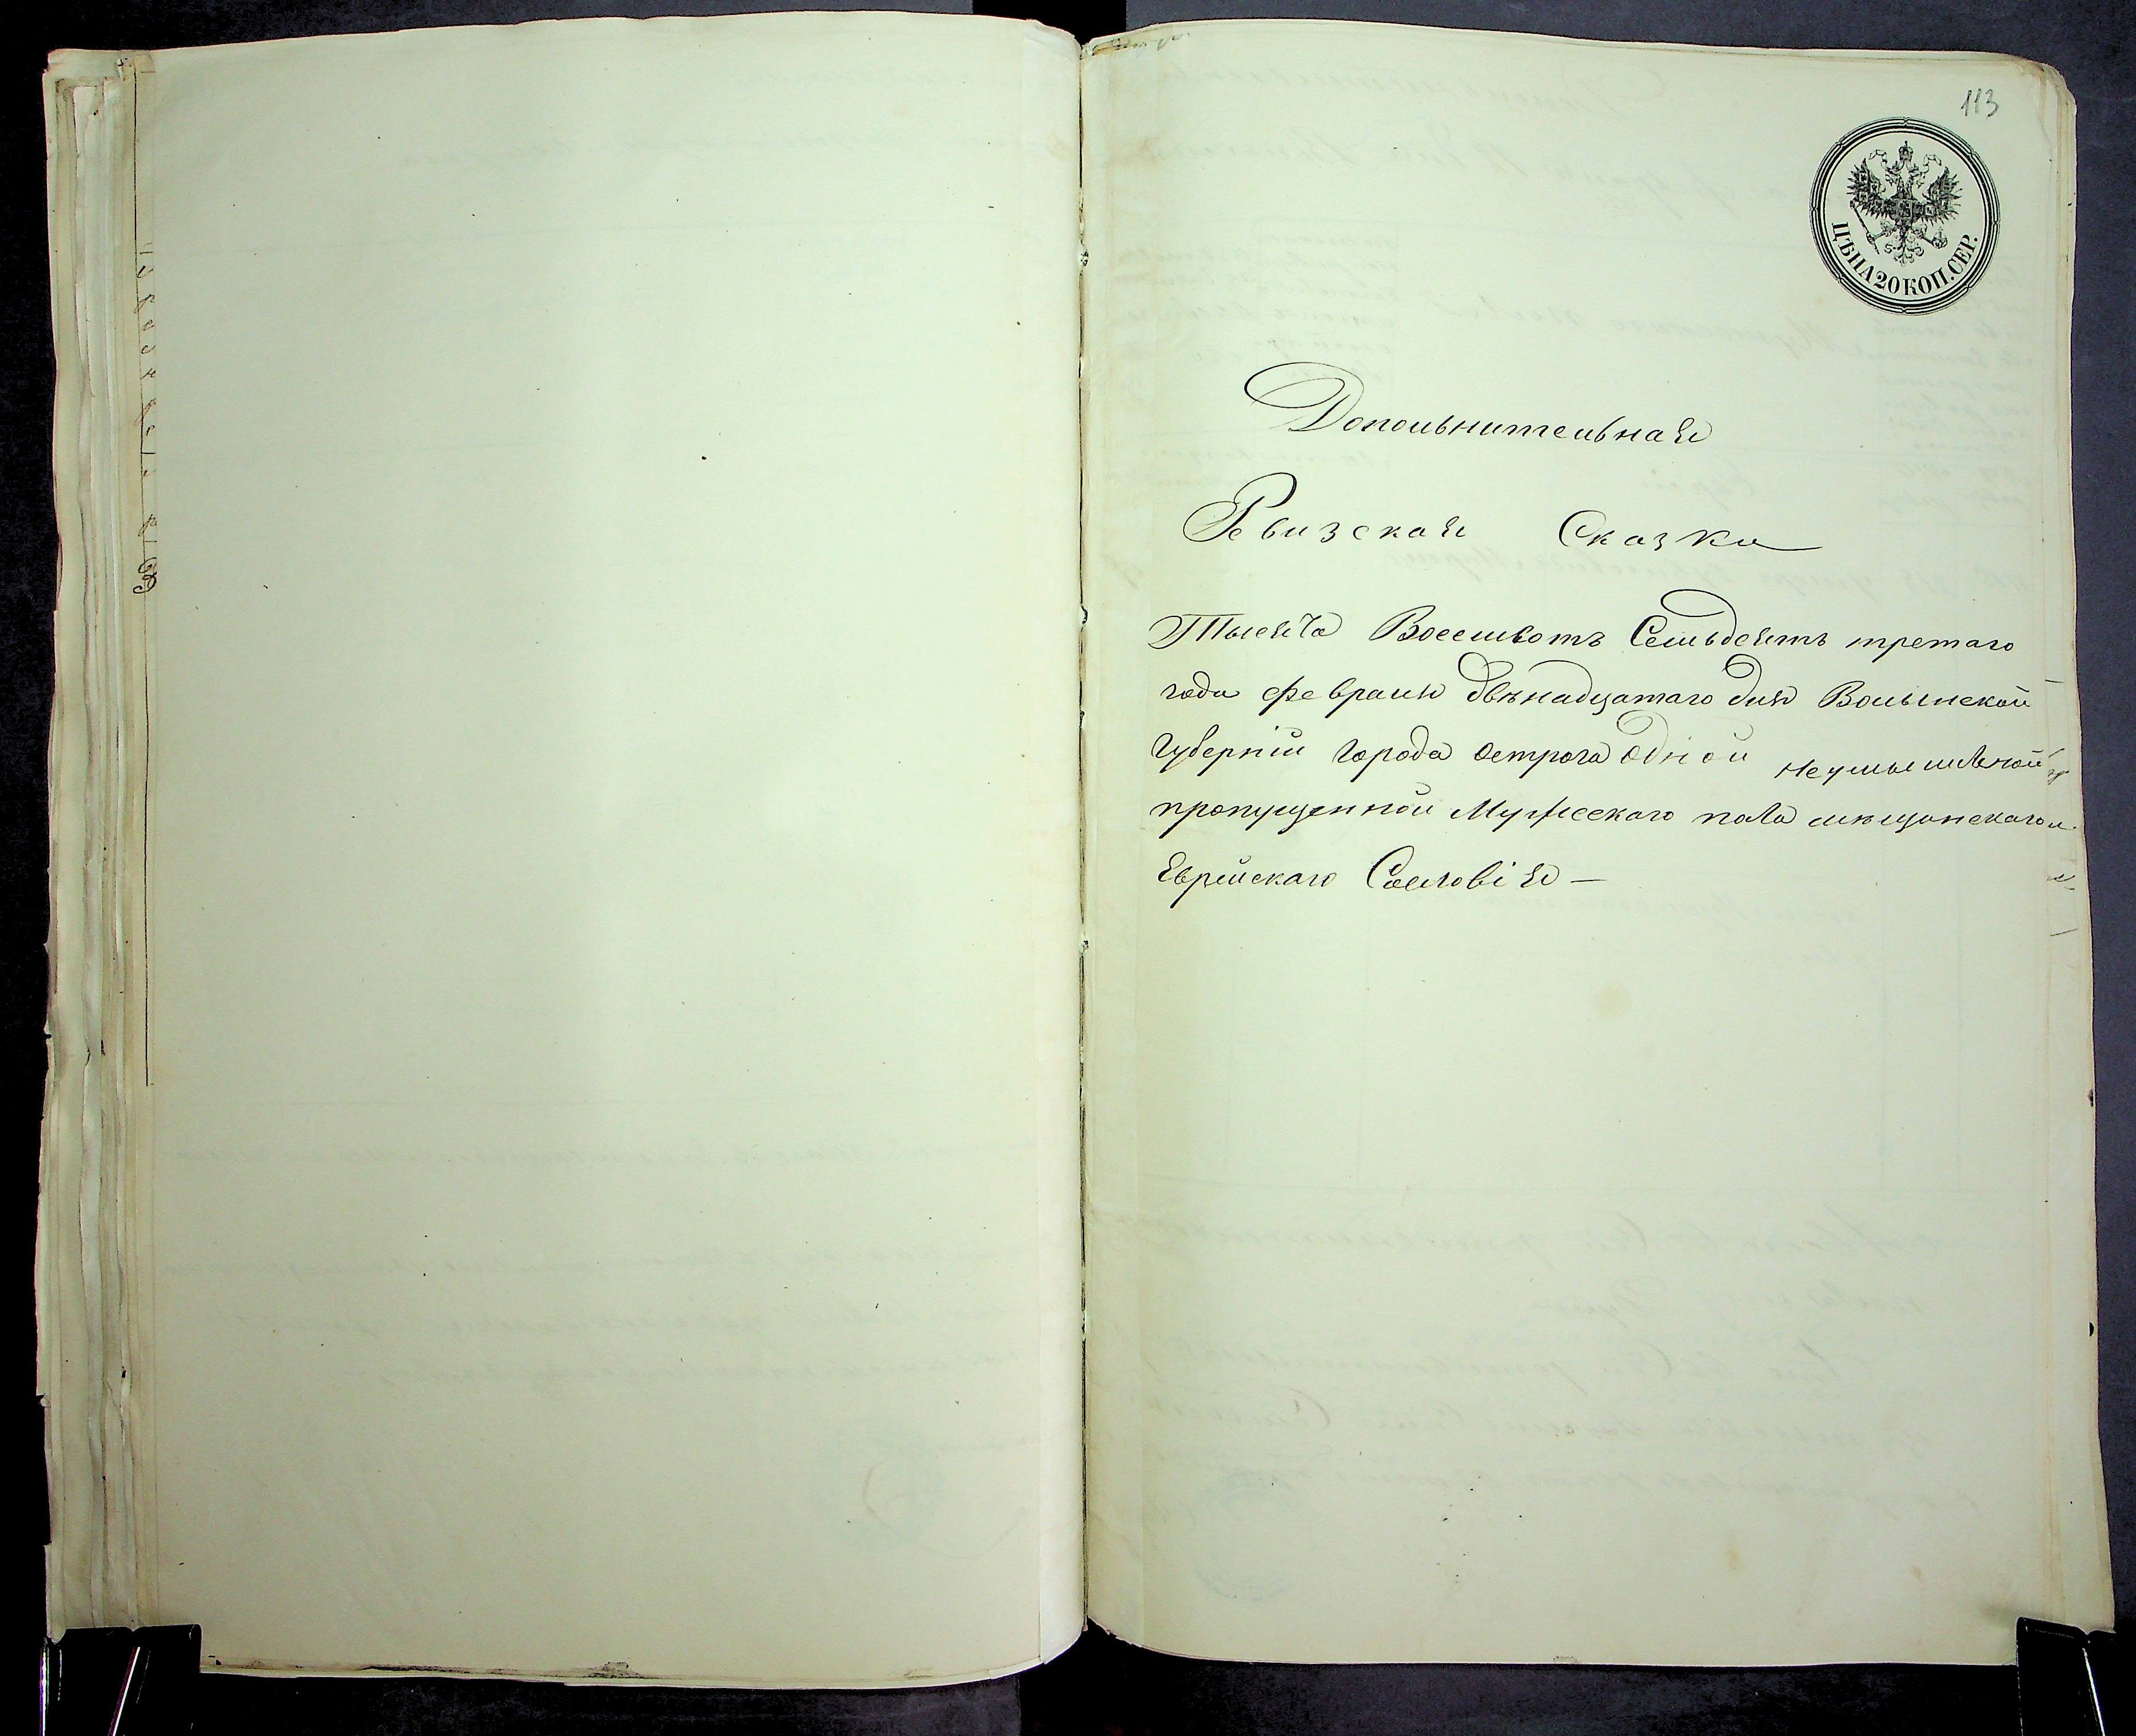 113
ЦѢНА 20 КОП. СЕР.
Допольнительная
Ревизская Сказка
Тысяча Восемьсотъ Семьдеятъ третаго
года февраля двѣнадцатаго дня Волынской
Губерніи города Острога одной неумышленой
пропущенной Мужескаго пола мѣщанскаго
Еврейскаго Сословія —